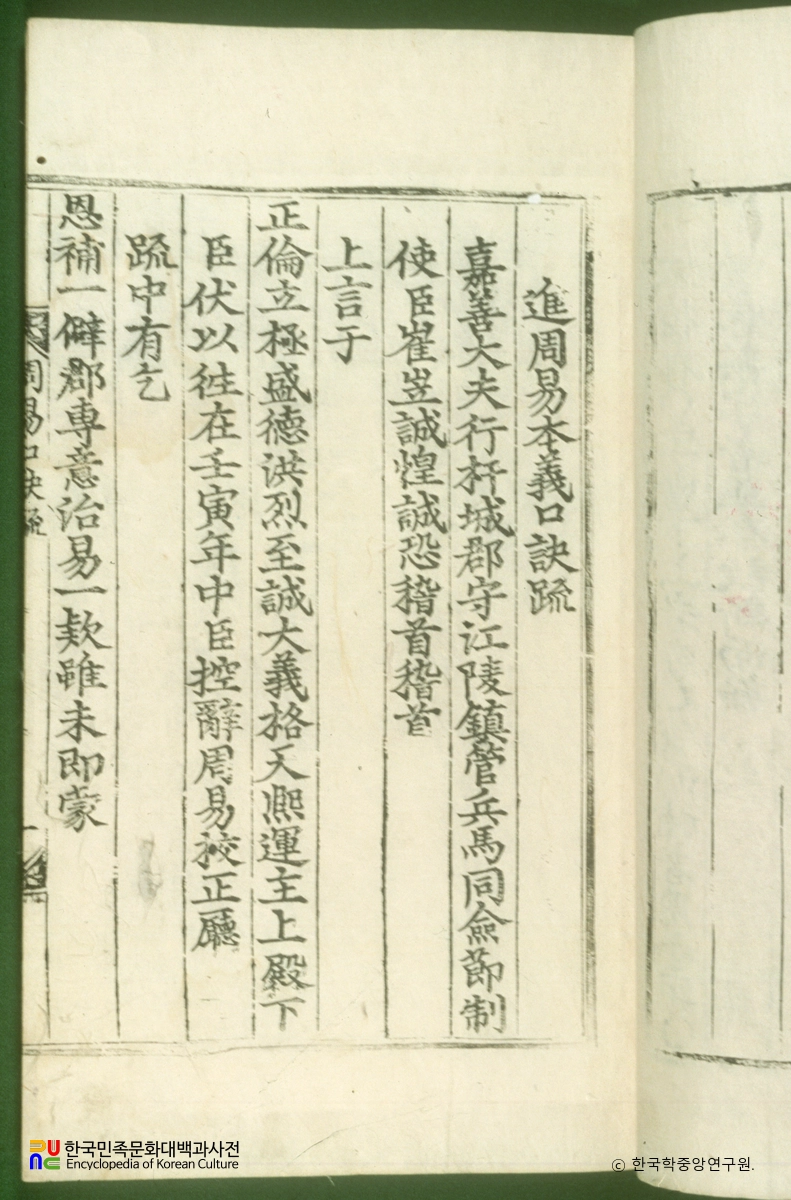 進周易本義口訣䟽
嘉善大夫行杆城郡守江陵鎮管兵馬同僉節制
使臣崔岦誠惶誠恐稽首稽首
上言于
正倫立極盛德洪烈至誠大義格天熈運主上殿下
臣伏以徃在壬寅年中臣控辭周易挍正廳
䟽中有乞
恩補一僻郡專意治易一欵雖未即蒙
周易口訣䟽
一
한국민족문화대백과사전
Encyclopedia of Korean Culture
© 한국학중앙연구원.